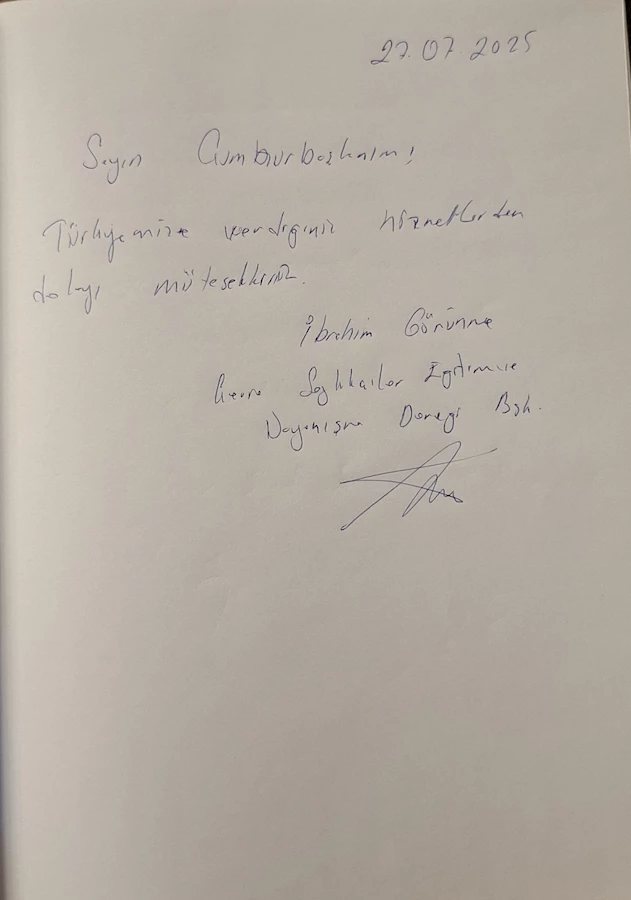 27.07.2025
Sayın Cumhurbaşkanım!
Türkiyemize verdiğiniz hizmetlerden
dolayı müteşekkiriz.
İbrahim Görünme
Sağlıkçılar Eğitim ve
Dayanışma Derneği Bşk.